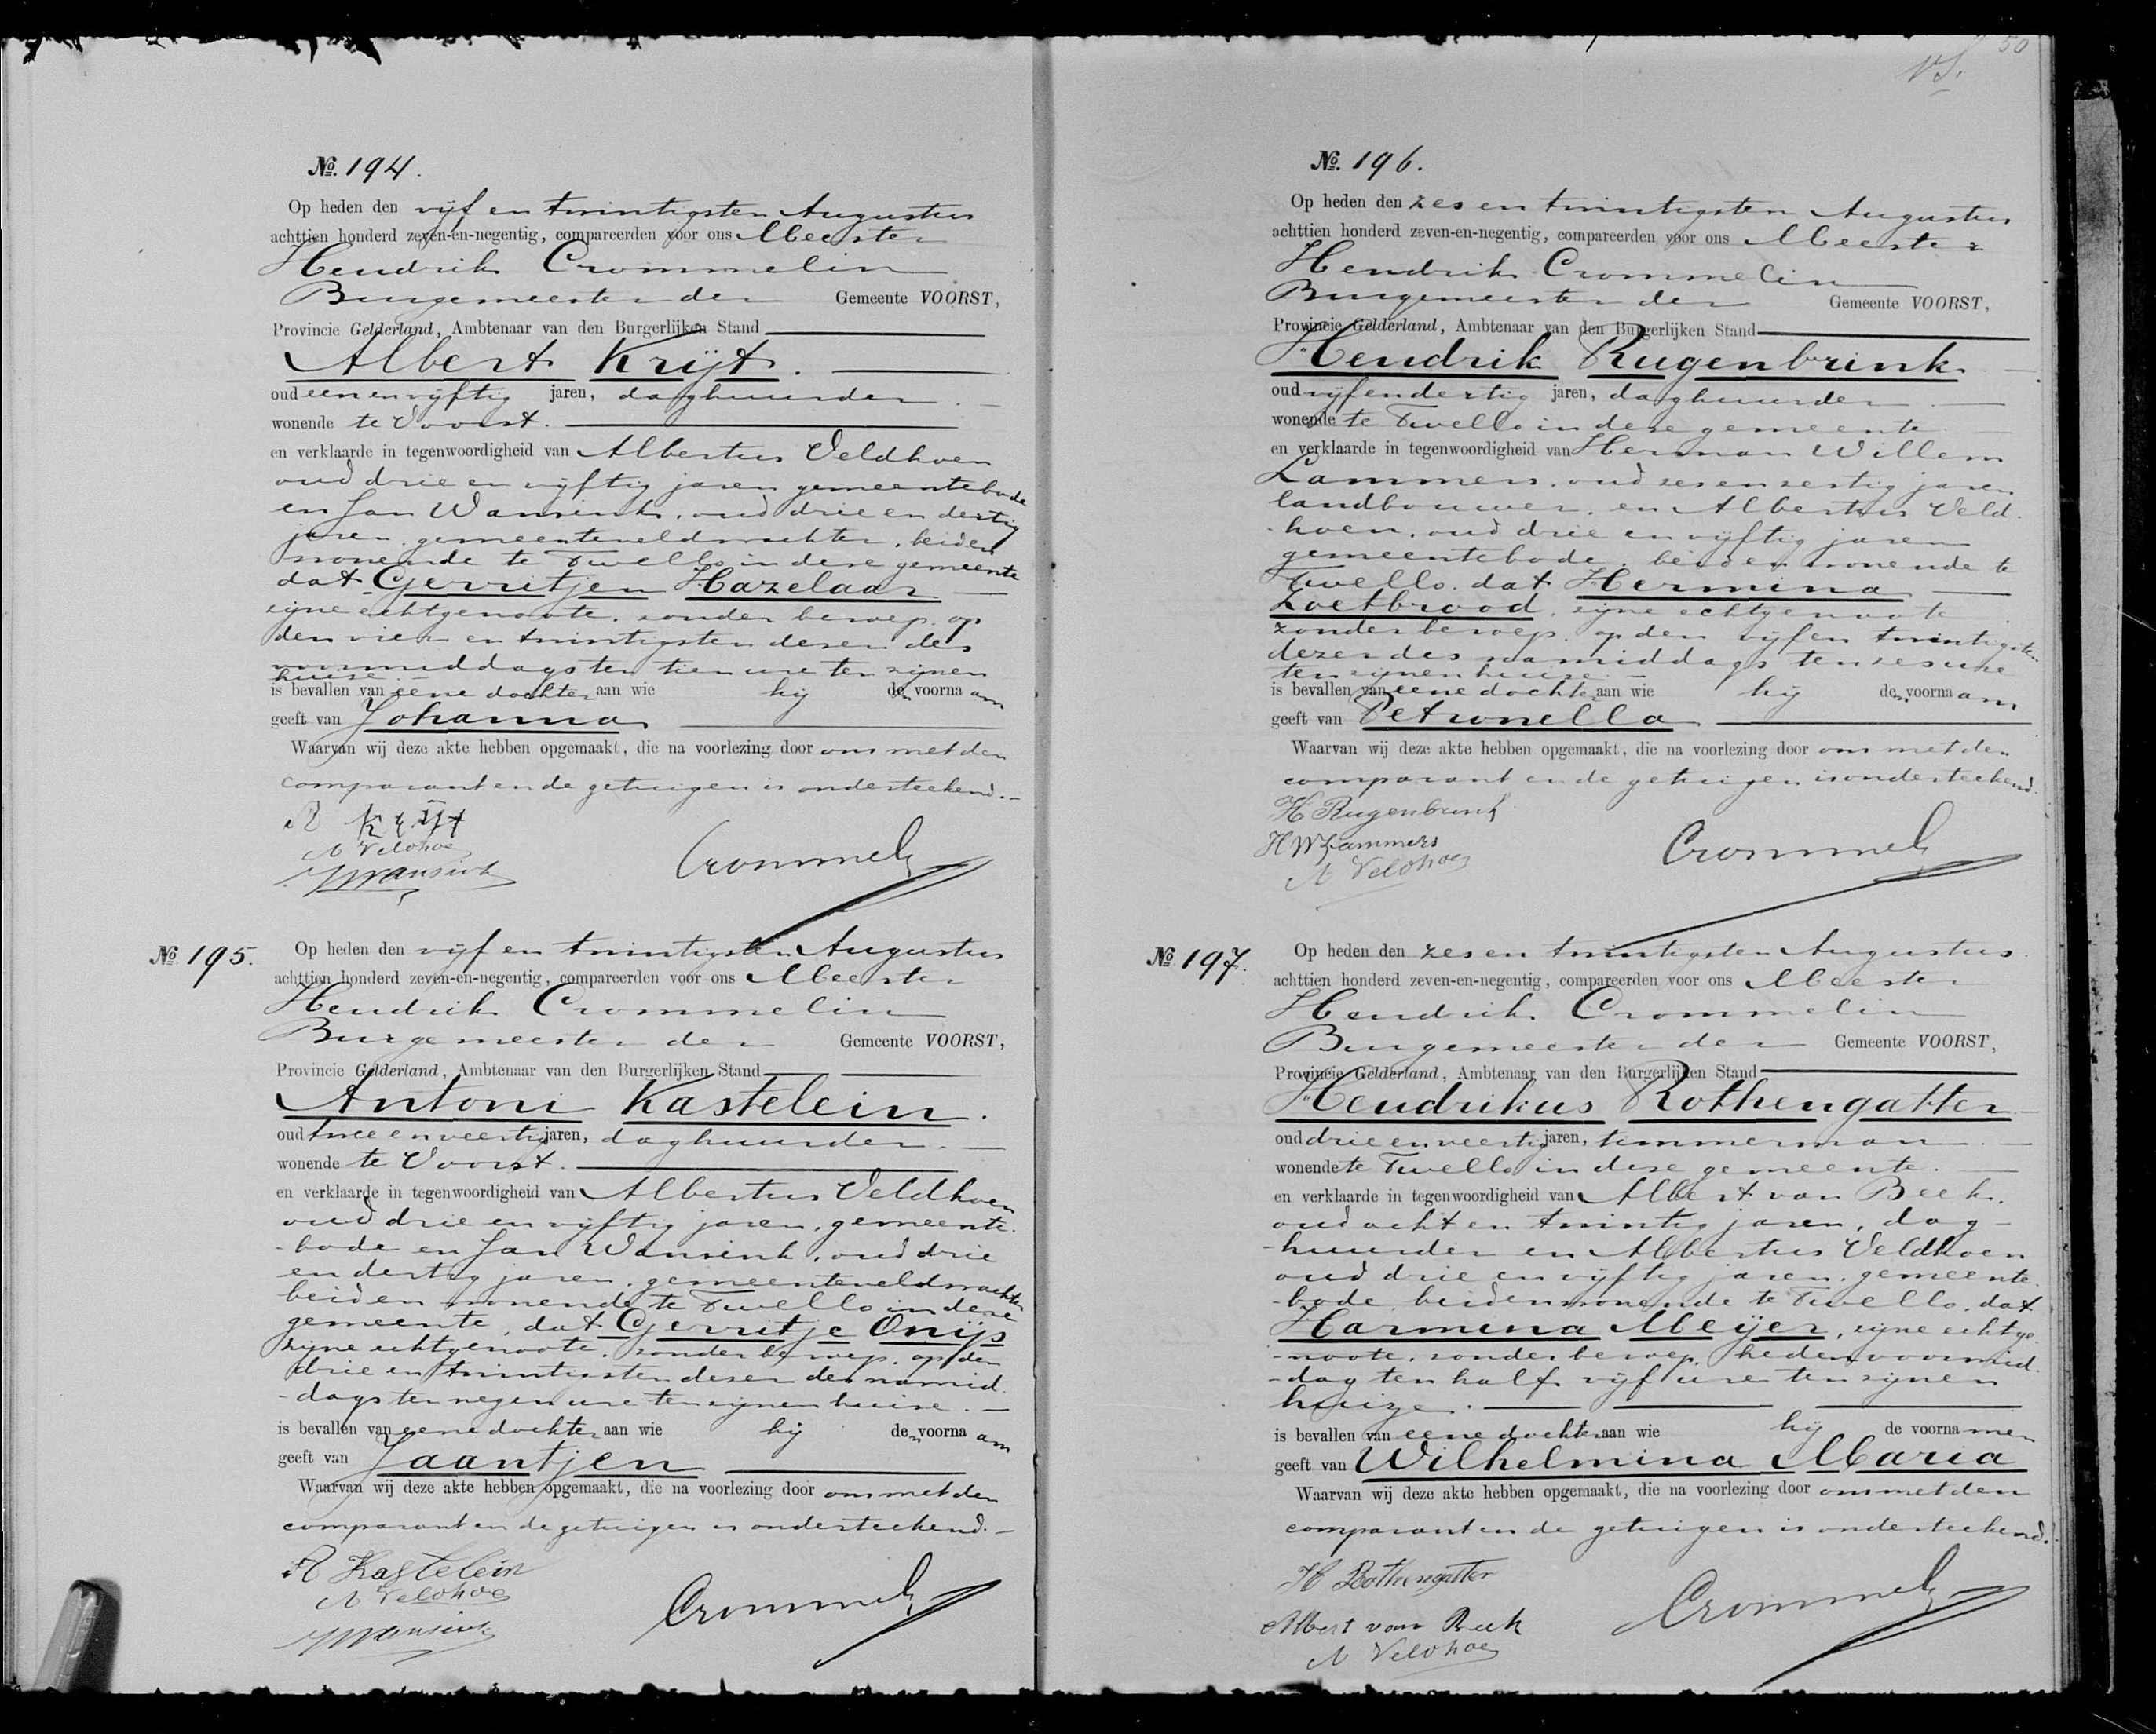 No. 194.
Op heden den vijf en twintigsten Augustus
achttien honderd zeven-en-negentig, compareerden voor ons Meester
Hendrik Crommelin
Burgemeester der Gemeente VOORST,
Provincie Gelderland, Ambtenaar van den Burgerlijken Stand
Albert Krijt.
oud een en vijftig jaren, daghuurder.
wonende te Voorst.
en verklaarde in tegenwoordigheid van Albertus Veldhoen
oud drie en vijftig jaren gemeentebode
en Jan Wansink, oud drie en dertig
jaren, gemeenteveldwachter, beiden
wonende te Twello in deze gemeente
dat Gerritjen Hazelaar
zijne echtgenoote, zonder beroep, op
den vier en twintigsten dezer des
voormiddags ten tien ure ten zijnen
huize.
is bevallen van eene dochter aan wie hij den voornaam
geeft van Johanna
Waarvan wij deze akte hebben opgemaakt, die na voorlezing door ons met den
comparant en de getuigen is onderteekend.
A Krijt
A Veldhoen
J Wansink
Crommelin
No. 195.
Op heden den vijf en twintigsten Augustus
achttien honderd zeven-en-negentig, compareerden voor ons Meester
Hendrik Crommelin
Burgemeester der Gemeente VOORST,
Provincie Gelderland, Ambtenaar van den Burgerlijken Stand
Antoni Kastelein.
oud twee en veertig jaren, daghuurder.
wonende te Voorst.
en verklaarde in tegenwoordigheid van Albertus Veldhoen
oud drie en vijftig jaren, gemeente-
-bode en Jan Wansink, oud drie
en dertig jaren, gemeenteveldwachter
beiden wonende te Twello in deze
gemeente, dat Gerritje Onijs
zijne echtgenoote, zonder beroep, op den
drie en twintigsten dezer des namid-
-dags ten negen ure ten zijnen huize.
is bevallen van eene dochter aan wie hij den voornaam
geeft van Jaantjen
Waarvan wij deze akte hebben opgemaakt, die na voorlezing door ons met den
comparant en de getuigen is onderteekend.
A Kastelein
A Veldhoen
J Wansink
Crommelin
50
No. 196.
Op heden den zes en twintigsten Augustus
achttien honderd zeven-en-negentig, compareerden voor ons Meester
Hendrik Crommelin
Burgemeester der Gemeente VOORST,
Provincie Gelderland, Ambtenaar van den Burgerlijken Stand
Hendrik Rugenbrink.
oud vijfendertig jaren, daghuurder
wonende te Twello in deze gemeente
en verklaarde in tegenwoordigheid van Herman Willem
Lammers, oud zes en zestig jaren
landbouwer, en Albertus Veld-
-hoen, oud drie en vijftig jaren
gemeentebode, beiden wonende te
Twello, dat Hermina
Zoetbrood, zijne echtgenoote
zonder beroep, op den vijf en twintigsten
dezer des namiddags ten zes ure
ten zijnen huize
is bevallen van eene dochter aan wie hij den voornaam
geeft van Petronella
Waarvan wij deze akte hebben opgemaakt, die na voorlezing door ons met den
comparant en de getuigen is onderteekend.
H Rugenbrink
H W Lammers
A Veldhoen
Crommelin
No. 197.
Op heden den zes en twintigsten Augustus
achttien honderd zeven-en-negentig, compareerden voor ons Meester
Hendrik Crommelin
Burgemeester der Gemeente VOORST,
Provincie Gelderland, Ambtenaar van den Burgerlijken Stand
Hendrikus Rothengatter
oud drie en veertig jaren, timmerman
wonende te Twello in deze gemeente.
en verklaarde in tegenwoordigheid van Albert van Beek.
oud acht en twintig jaren, dag-
-huurder en Albertus Veldhoen
oud drie en vijftig jaren, gemeente-
-bode, beiden wonende te Twello, dat
Harmina Meijer, zijne echtge-
-noote, zonder beroep, heden voormid-
-dag ten half vijf ure ten zijnen
huize.
is bevallen van eene dochter aan wie hij de voornamen
geeft van Wilhelmina Maria
Waarvan wij deze akte hebben opgemaakt, die na voorlezing door ons met den
comparant en de getuigen is onderteekend.
H Rothengatter
Albert van Beek
A Veldhoen
Crommelin